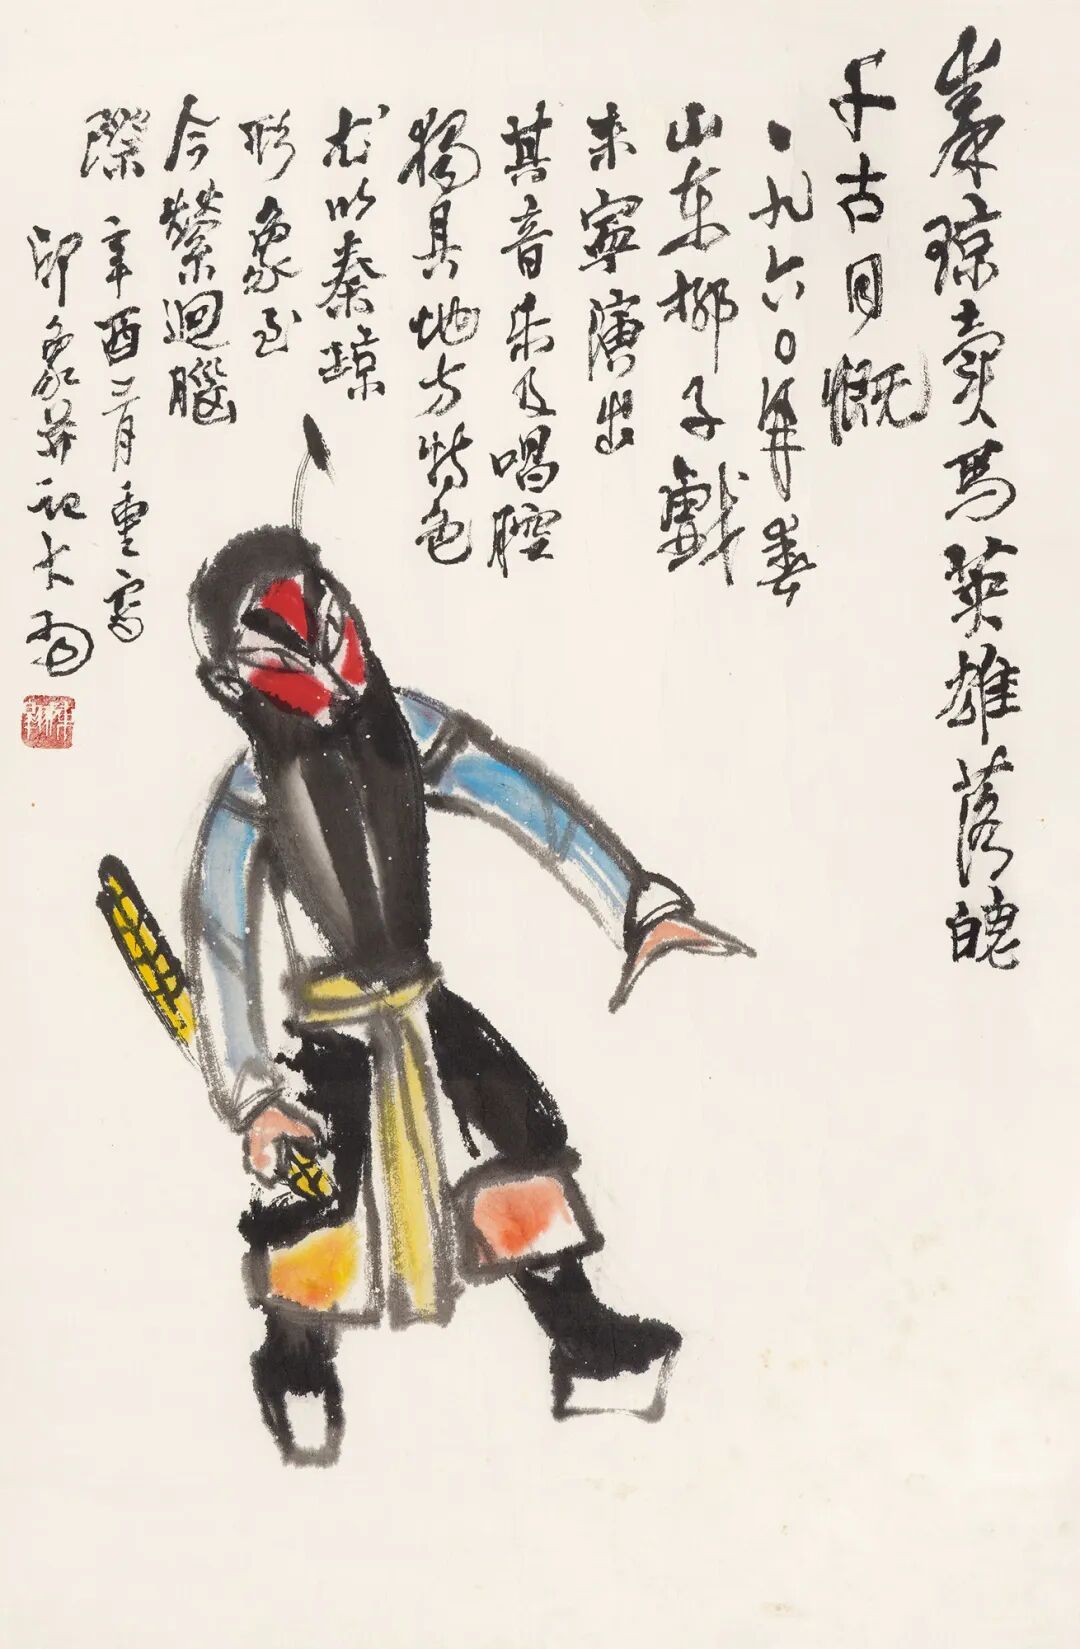 秦琼賣馬英雄落魄
千古同慨
一九六〇年春
山东梆子戲
来寧演出
其音乐及唱腔
獨具地方特色
尤以秦琼
形象至
今縈迴腦
際 辛酉三月重寫
印象并記大羽